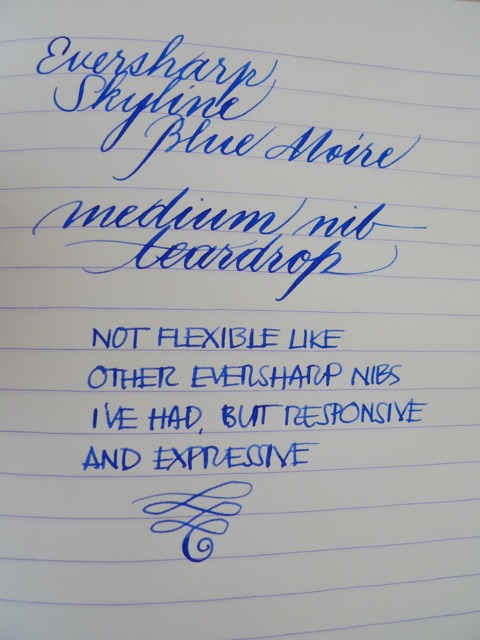 Eversharp
Skyline
Blue Moire
medium nib
teardrop
NOT FLEXIBLE LIKE
OTHER EVERSHARP NIBS
I'VE HAD, BUT RESPONSIVE
AND EXPRESSIVE